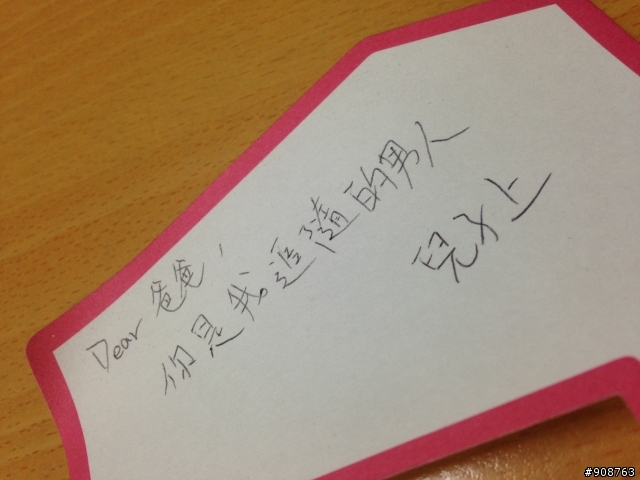 Dear 爸爸，
你是我追隨的男人
兒子上
#908763